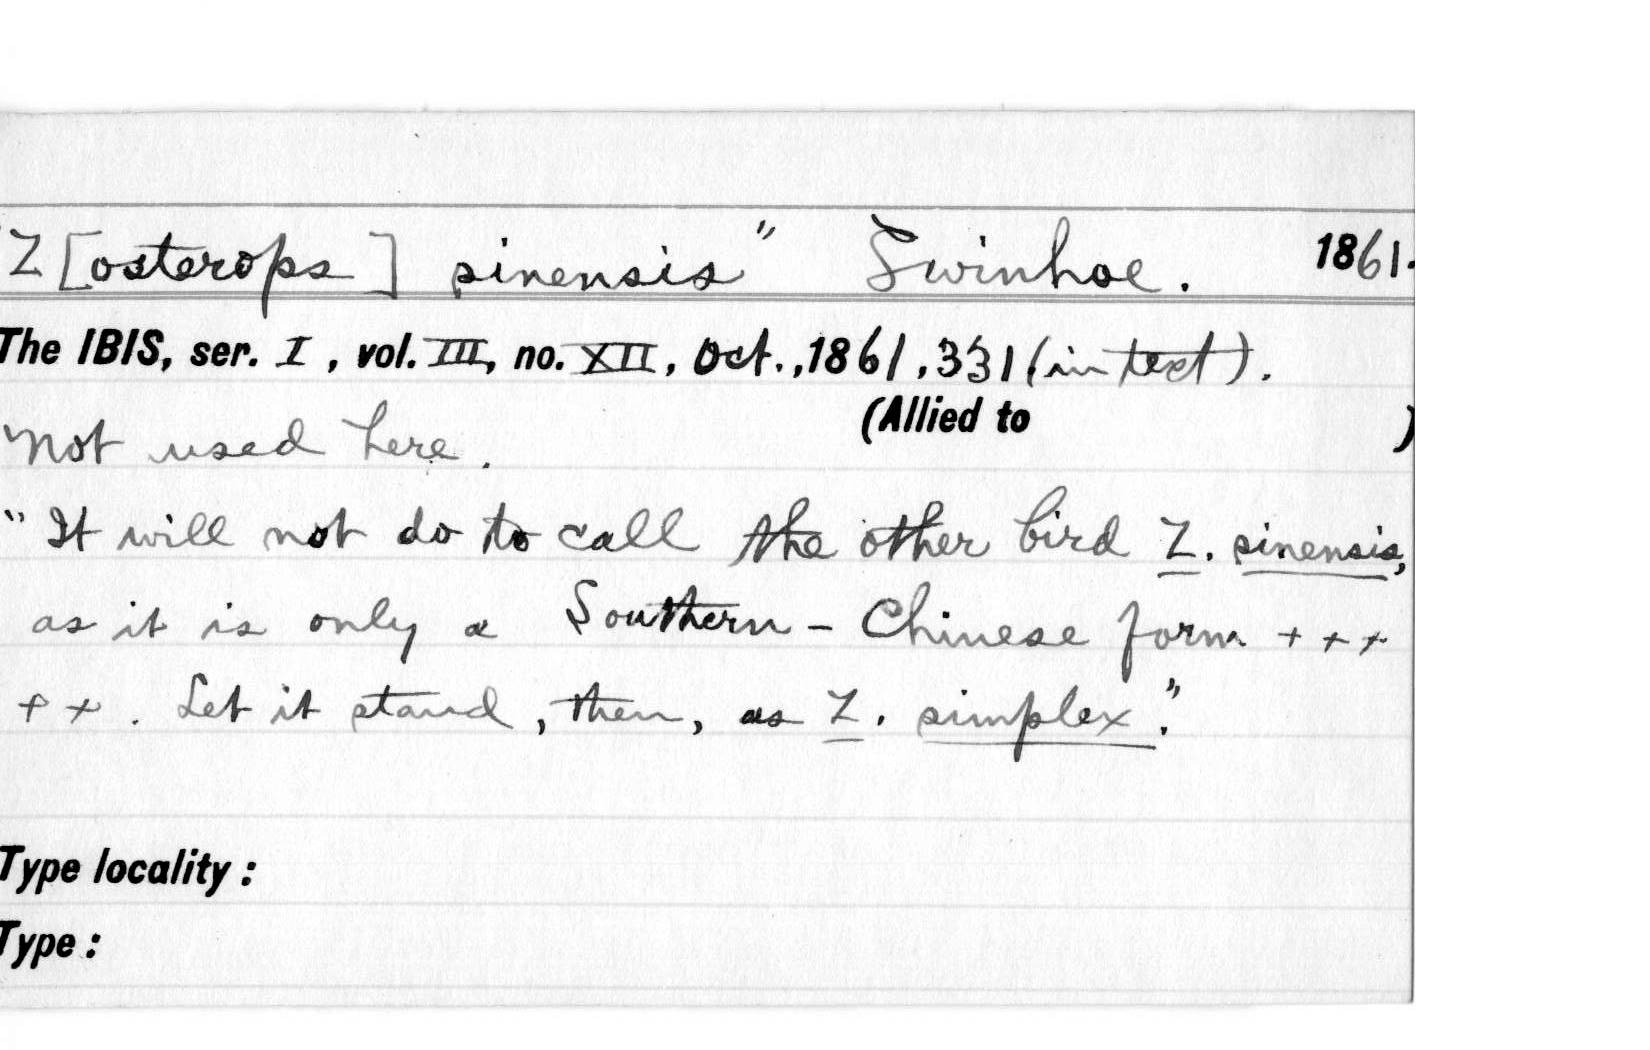 "Z[osterops] sinensis" Swinhoe. 1861.
The IBIS, ser. I, vol. III, no. XII, Oct., 1861, 331 (in text).
(Allied to )
Not used here.
"It will not do to call the other bird Z. sinensis,
as it is only a Southern-Chinese form + + +
+ + . Let it stand, then, as Z. simplex."
Type locality:
Type: